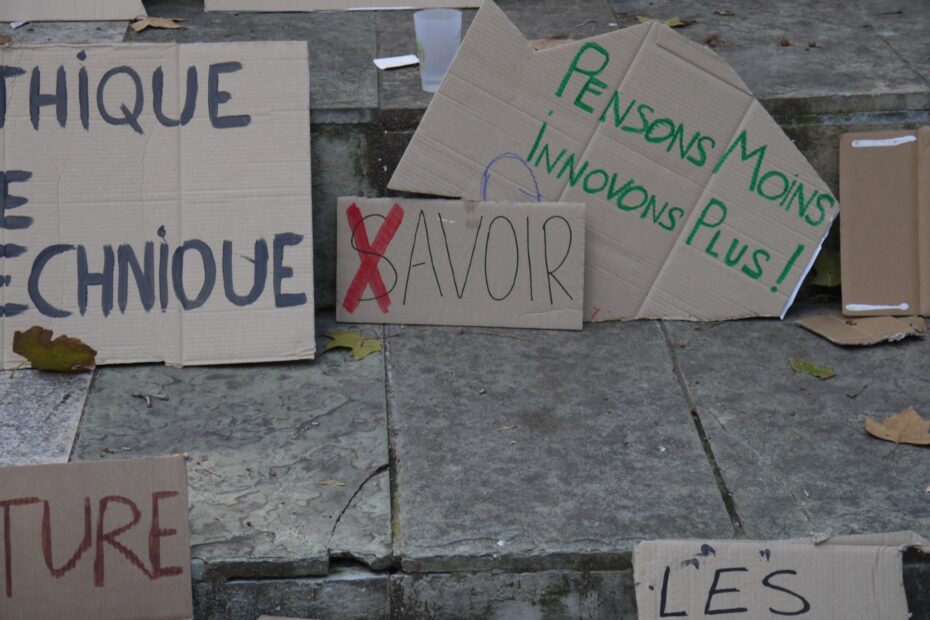 THIQUE
E
ECHNIQUE
SAVOIR
PENSONS MOINS
INNOVONS PLUS !
TURE
LES